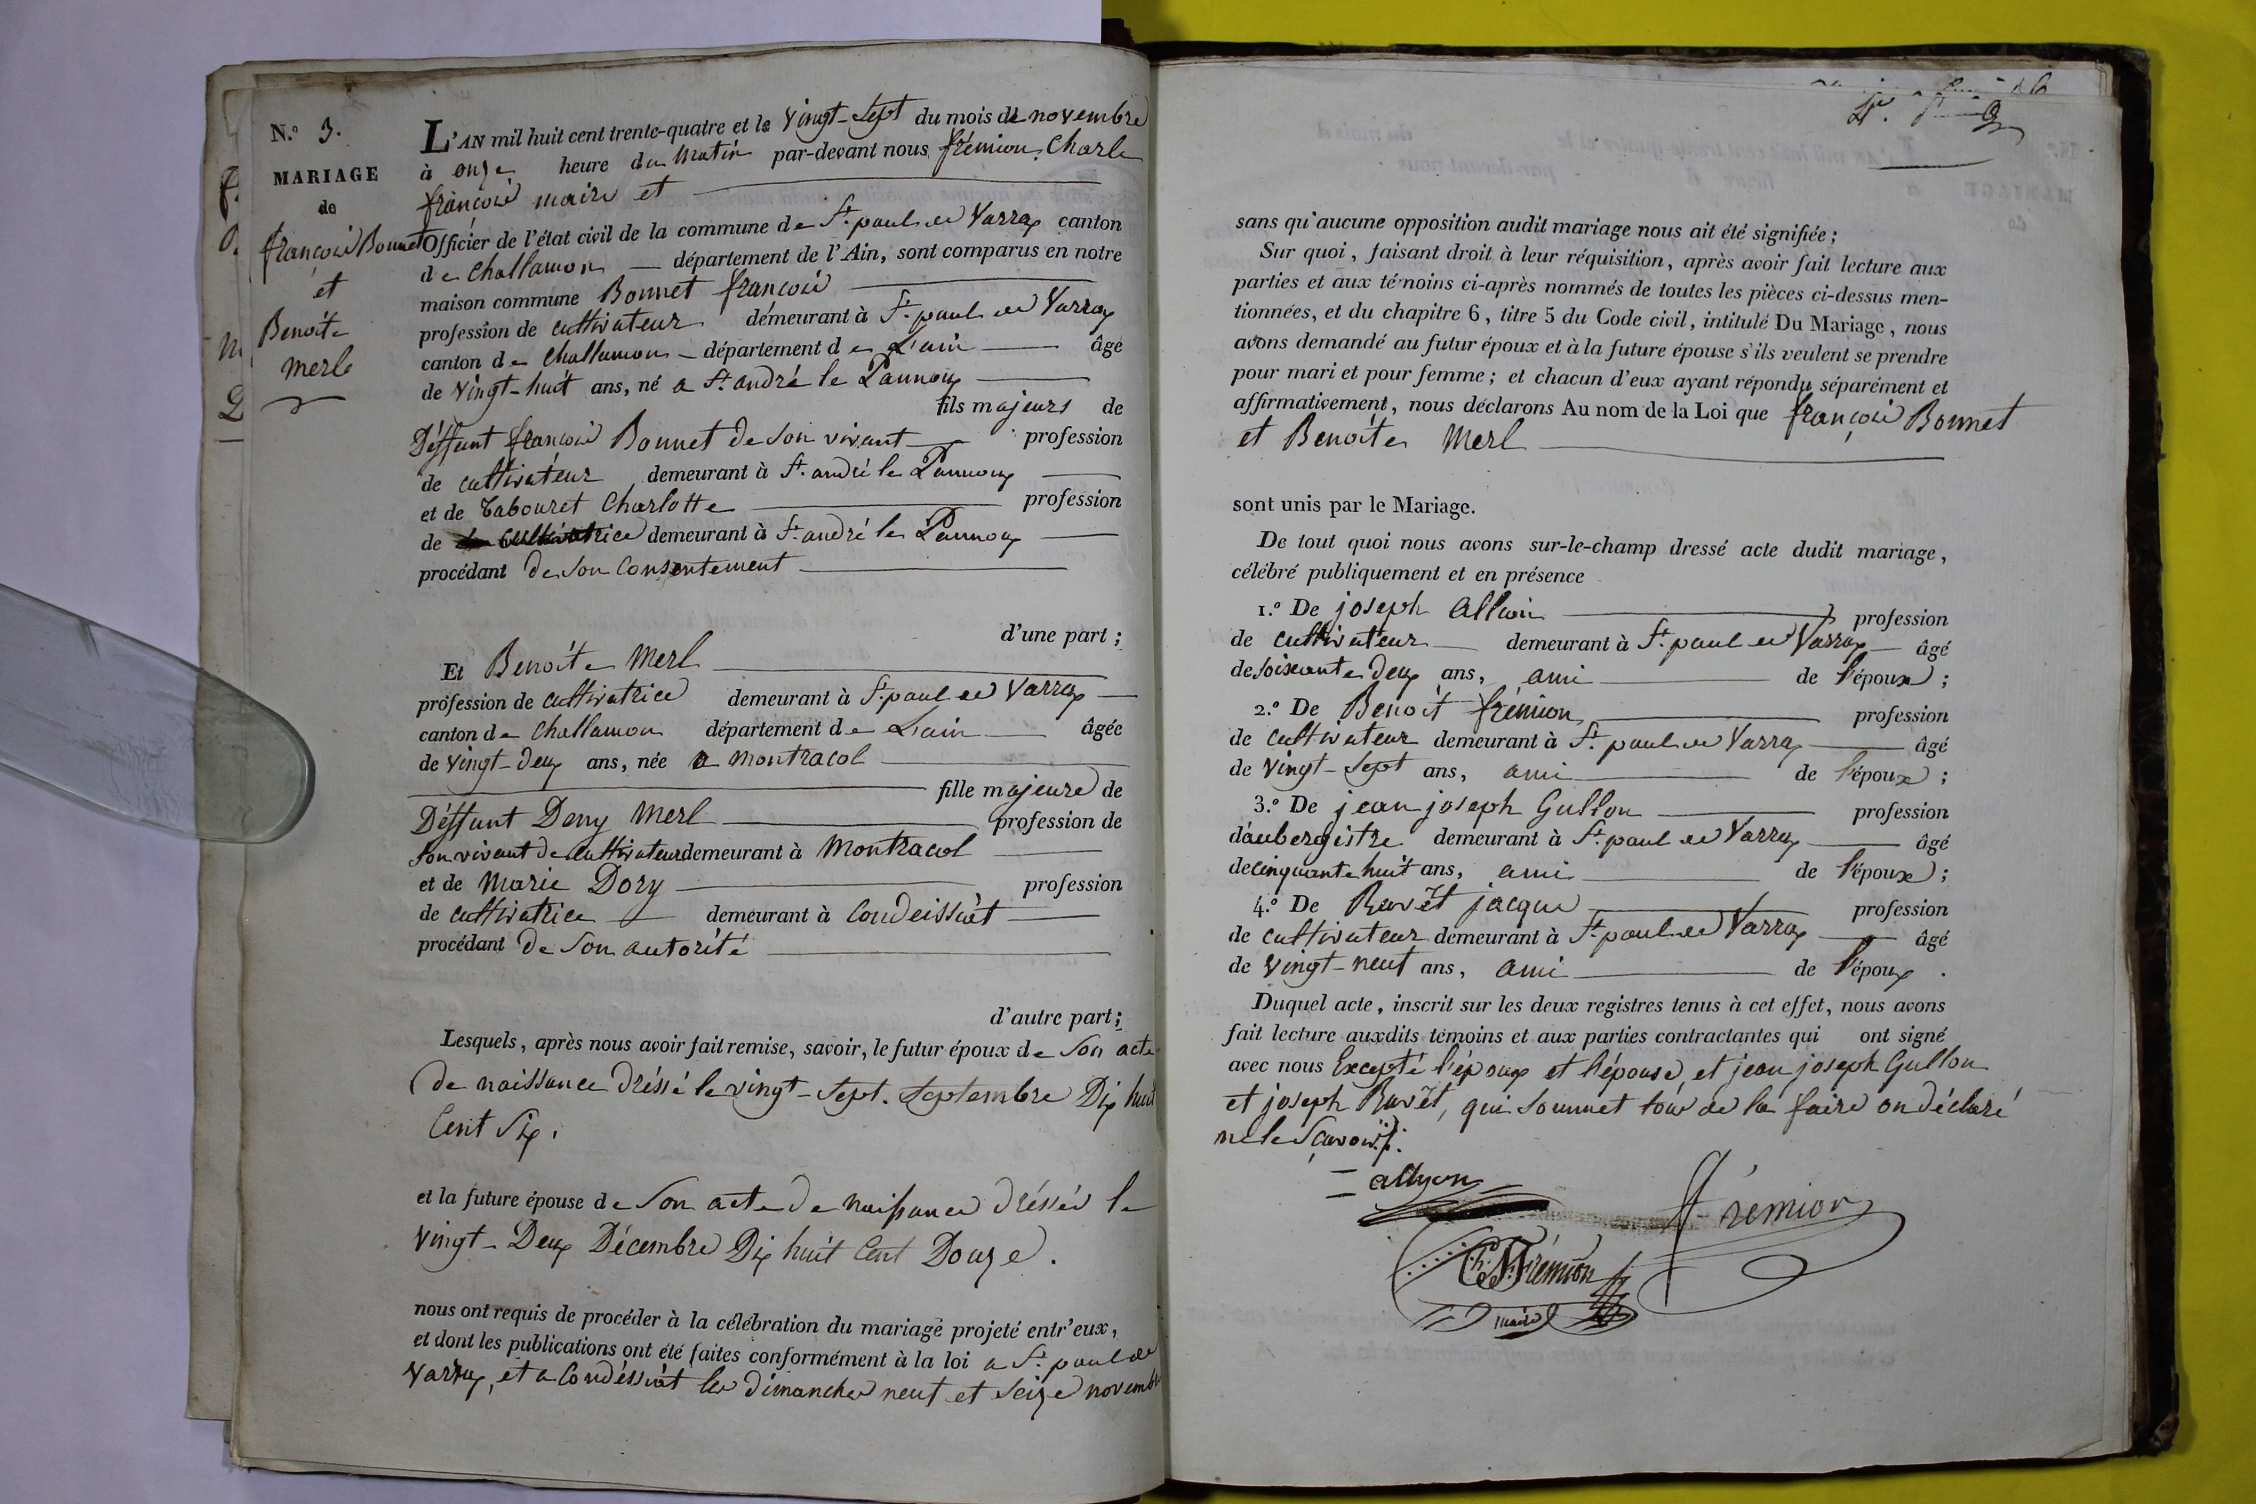 N.º 3.
MARIAGE
de
françois Bonnet
et
Benoite
merle
L'AN mil huit cent trente-quatre et le vingt-sept du mois de novembre
à onze heure du matin par-devant nous frémion Charle
françois maire et
Officier de l'état civil de la commune de St. paul de Varrax canton
de challamon département de l'Ain, sont comparus en notre
maison commune Bonnet françois
profession de cultivateur demeurant à St. paul de Varrax
canton de challamon département de L'ain âgé
de vingt-huit ans, né a St. andré le Pannoux
fils majeurs de
Déffunt françois Bonnet de son vivant profession
de cultivateur demeurant à St. andré le Pannoux
et de Tabouret Charlotte profession
de cultivatrice demeurant à St. andré le Pannoux
procédant de son consentement
d'une part;
Et Benoite Merl
profession de cultivatrice demeurant à St. paul de Varrax
canton de challamon département de L'ain âgée
de vingt-deux ans, née a montracol
fille majeure de
Déffunt Deny Merl profession de
son vivant de cultivateur demeurant à Montracol
et de Marie Dory profession
de cultivatrice demeurant à Condeissiat
procédant de son autorité
d'autre part;
Lesquels, après nous avoir fait remise, savoir, le futur époux de son acte
de naissance dréssé le vingt-sept. septembre Dix huit
Cent Six.
et la future épouse de son acte de naissance dréssée le
vingt-Deux Décembre Dix huit Cent Douze.
nous ont requis de procéder à la célébration du mariage projeté entr'eux,
et dont les publications ont été faites conformément à la loi a St. paul de
Varrax, et a Condéssiat les dimanche neuf et seize novembre
sans qu'aucune opposition audit mariage nous ait été signifiée;
Sur quoi, faisant droit à leur réquisition, après avoir fait lecture aux
parties et aux témoins ci-après nommés de toutes les pièces ci-dessus men-
tionnées, et du chapitre 6, titre 5 du Code civil, intitulé Du Mariage, nous
avons demandé au futur époux et à la future épouse s'ils veulent se prendre
pour mari et pour femme; et chacun d'eux ayant répondu séparément et
affirmativement, nous déclarons Au nom de la Loi que françois Bonnet
et Benoite Merl
sont unis par le Mariage.
De tout quoi nous avons sur-le-champ dressé acte dudit mariage,
célébré publiquement et en présence
1.º De joseph Allion profession
de cultivateur demeurant à St. paul de Varrax âgé
de soixante deux ans, ami de l'époux;
2.º De Benoit frémion profession
de cultivateur demeurant à St. paul de Varrax âgé
de vingt-sept ans, ami de l'époux;
3.º De jean joseph Gullon profession
d'aubergistre demeurant à St. paul de Varrax âgé
de cinquante huit ans, ami de l'époux;
4.º De Ravét jacque profession
de cultivateur demeurant à St. paul de Varrax âgé
de vingt-neuf ans, ami de l'époux.
Duquel acte, inscrit sur les deux registres tenus à cet effet, nous avons
fait lecture auxdits témoins et aux parties contractantes qui ont signé
avec nous Excepté l'époux et l'épouse, et jean joseph Gullon
et joseph Ravét, qui sommet tous de la faire on déclaré
ne le Scavoir.
allyon
frémion
Ch. F. Frémion
maire